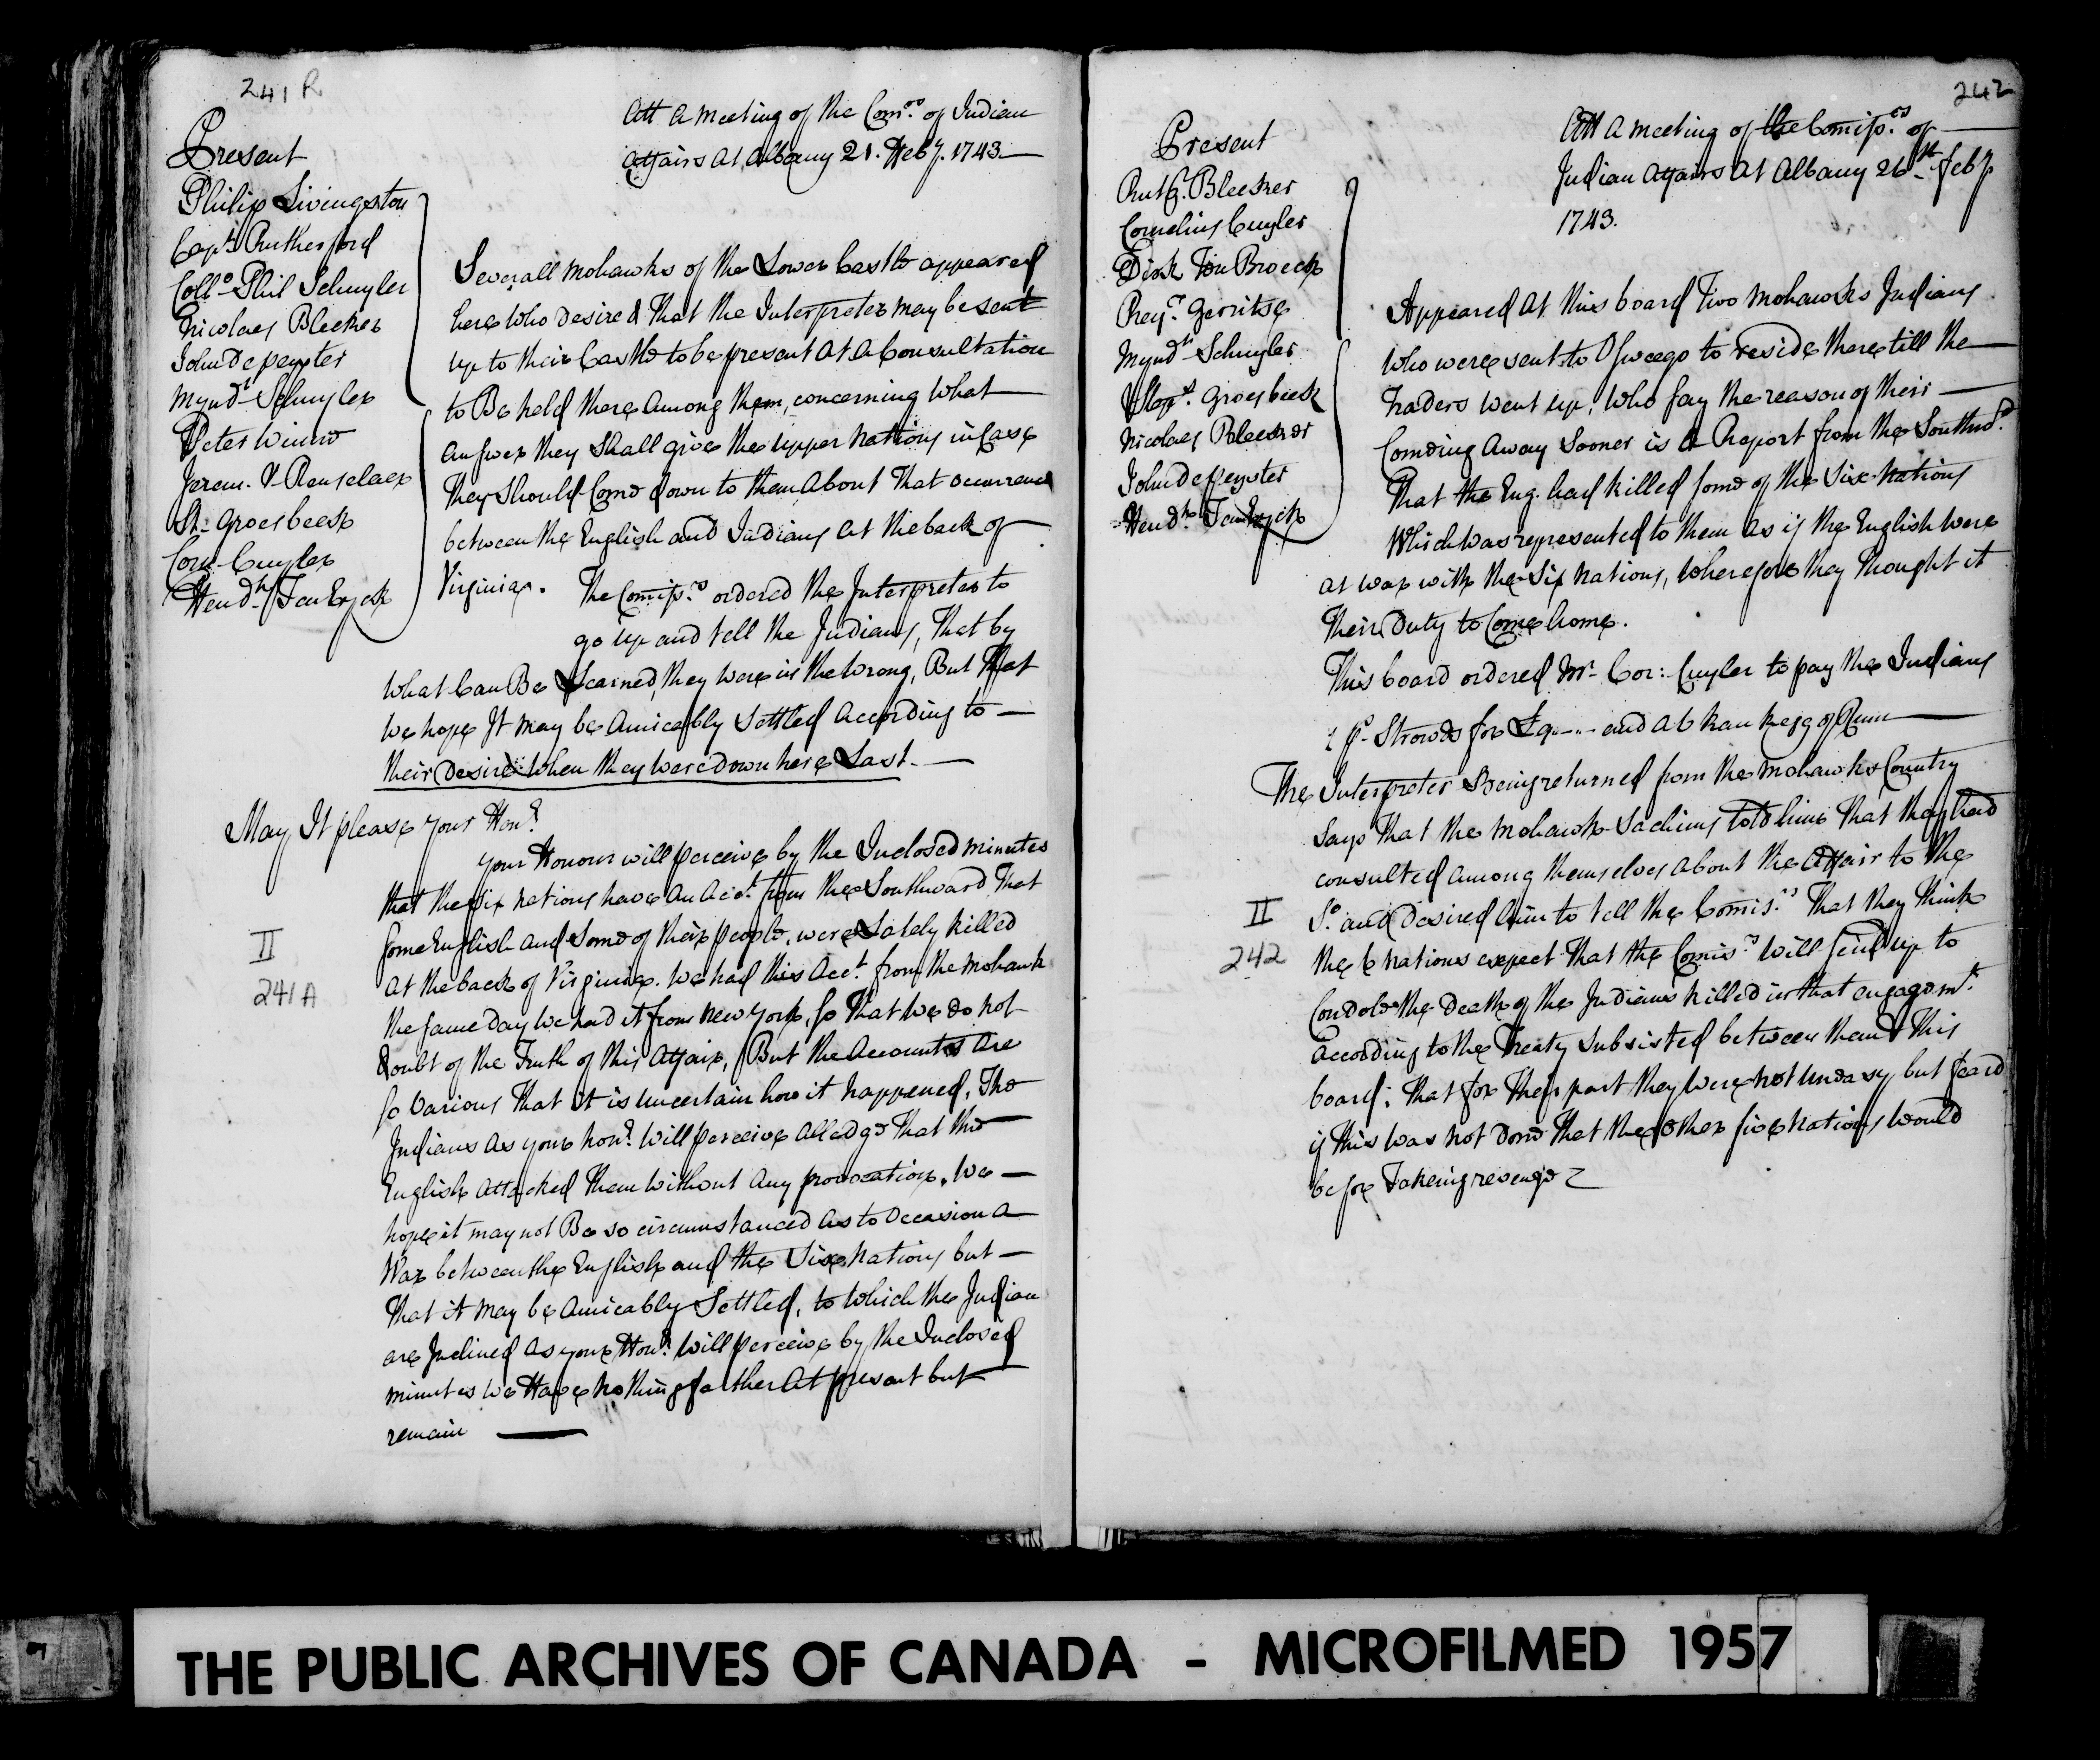 241 R
Att a meeting of the Com.rs of Indian
Affairs at Albany 21. Feb.y 1743
Present
Philip Livingston
Capt. Rutherford
Coll.o Phil Schuyler
Nicolaes Bleeker
John Depeyster
Mynd.t Schuyler
Peter Winne
Jerem. V. Renselaer
St. Groesbeek
Corn. Cuyler
Hend.k Ten Eyck
Severall mohawks of the Lower Castle appeared
here who desired That the Interpreter may be sent
up to their Castle to be present at a Consultation
to Be held there among them, concerning What
answer they shall give the upper nations in Case
They should Come down to them about That occurrence
between the English and Indians at the back of
Virginia. The Comiss.rs ordered the Interpreter to
go up and tell the Indians, That by
What Can Be Learned, they were in the wrong, But That
We hope It may be amicably Settled according to
their Desire when they were down here Last.
May It please your Hon.r
your Honour will perceive by the Inclosed minutes
that the six nations have an Acc.t from the Southward That
some English and Some of their people, were Lately killed
II
241 A
at the back of Virginia. We had this Acc.t from the Mohawk
the same Day We had it from New York, so That We do not
Doubt of the Truth of this affair, But the Accounts are
so Various That It is uncertain how it happened, The
Indians as your hon.r Will perceive alledge That the
English attacked Them without any provocation, We
hope it may not Be so circumstanced as to occasion a
War between the English and the Six Nations but
That it may be amicably Settled, to Which the Indian
are Inclined as your Hon.r Will perceive by the Inclosed
minutes We Have nothing farther At present but
remain
242
Att a meeting of the Comiss.rs of
Indian Affairs at Albany 26th Feb.y
1743.
Present
Rutg. Bleeker
Cornelius Cuyler
Dirk Ten Broeck
Rey.r Gerritse
Mynd.t Schuyler
Step.s Groesbeek
Nicolaes Bleeker
John Depeyster
Hend.k Ten Eyck
Appeared at this board Two mohawks Indians
Who were sent to Osweego to reside there till the
Traders went up, Who say the reason of their
Comeing away sooner is a Report from the Southw.d
That the Eng. had killed some of the Six Nations
Which was represented to them as if the English were
at war with the Six Nations, Wherefore they thought it
Their Duty to Come home.
This board ordered Mr. Cor: Cuyler to pay the Indians
1 p.s Strowds for and a kegg of Rum
The Interpreter Being returned from the Mohawks Country
says That the Mohawk Sachims told him That they had
consulted among themselves about the Affair to the
II
242
S.o and desired him to tell the Comis.rs That they Think
the 6 Nations expect That the Comis.rs Will send up to
Condole the Death of the Indians killed in that engagem.t
According to the Treaty Subsisted between them & This
board; That for Their part they Were not uneasy but feard
if this Was not done That the other five nations would
be for Takeing revenge
THE PUBLIC ARCHIVES OF CANADA - MICROFILMED 1957